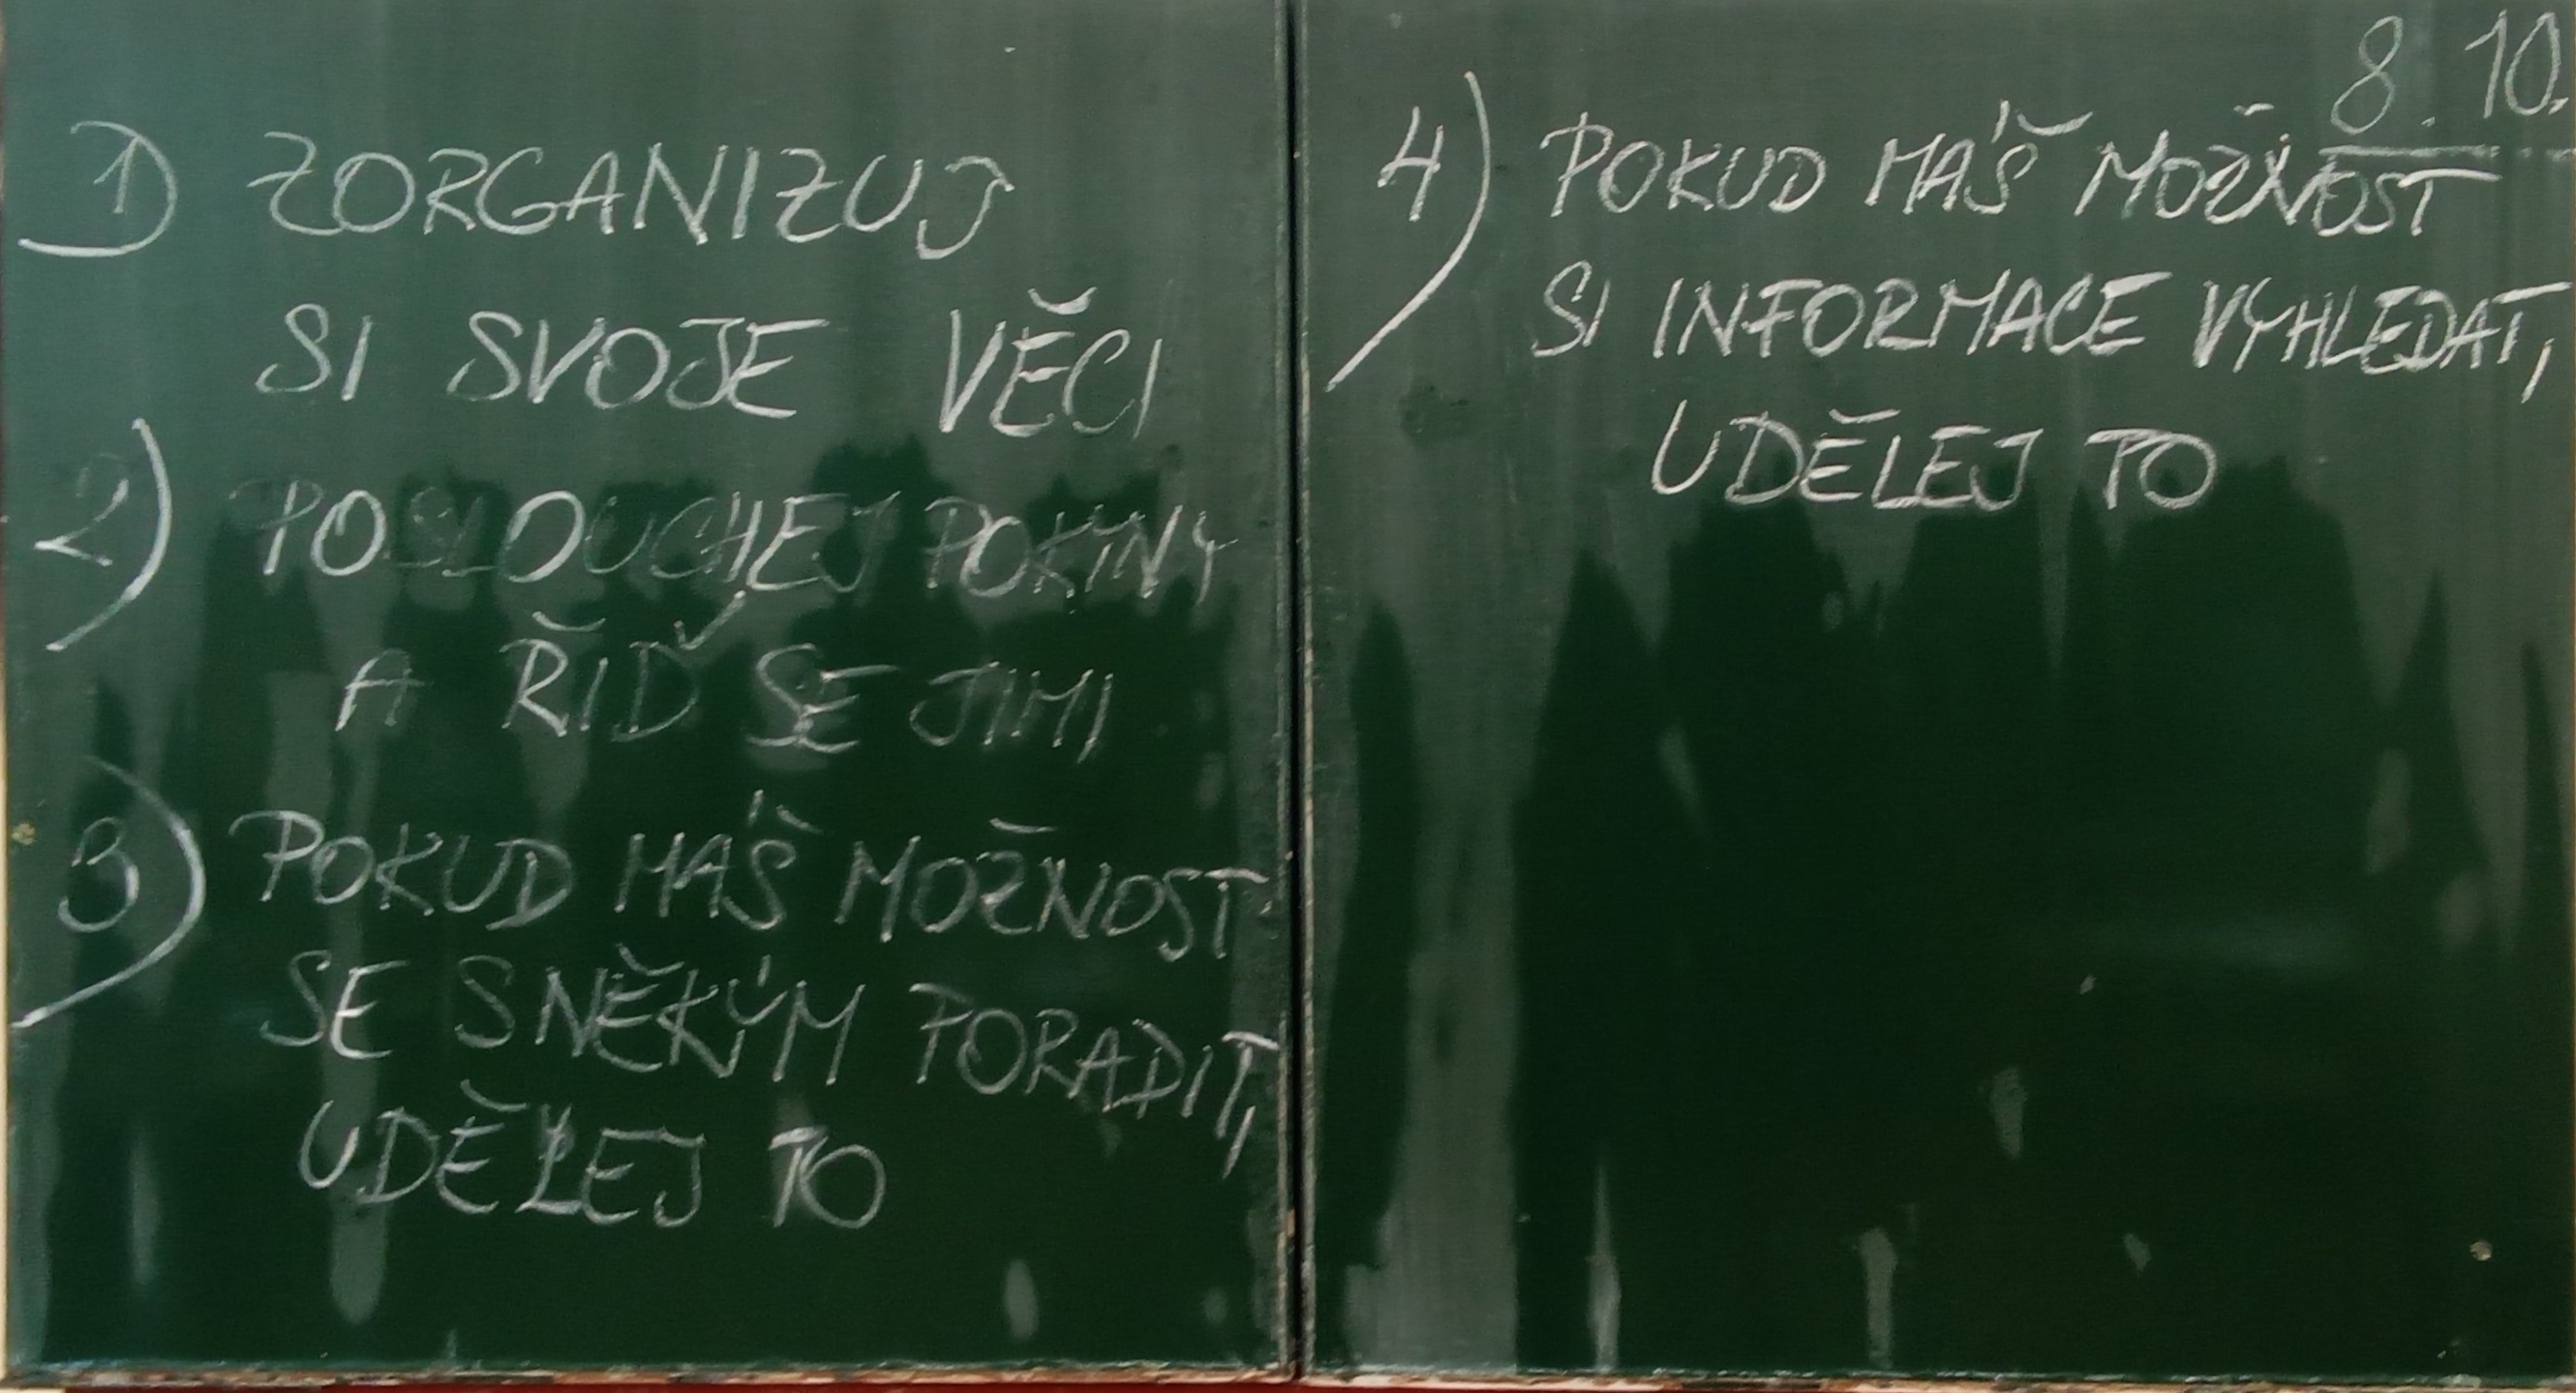 8. 10.
1) ZORGANIZUJ
SI SVOJE VĚCI
2) POSLOUCHEJ POKYNY
A ŘIĎ SE JIMI
3) POKUD MÁŠ MOŽNOST
SE S NĚKÝM PORADIT,
UDĚLEJ TO
4) POKUD MÁŠ MOŽNOST
SI INFORMACE VYHLEDAT,
UDĚLEJ TO